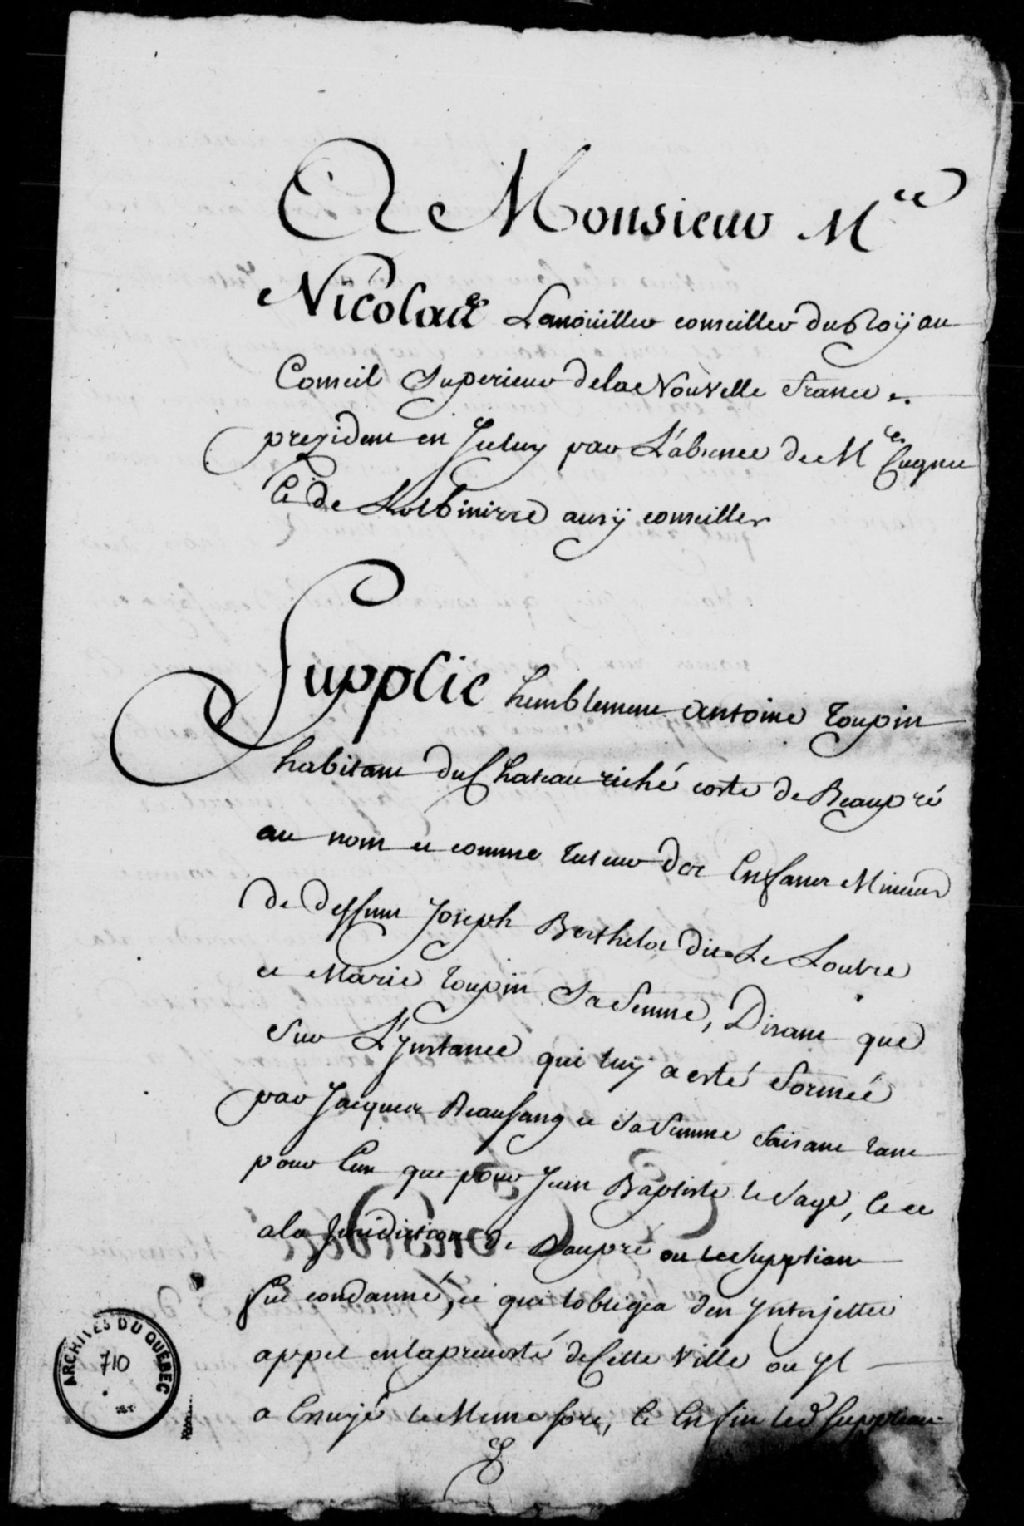 A Monsieur M.re
Nicolas Lanoüiller conseiller du Roÿ au
Conseil Superieur de la Nouvelle france
president en Jcelluy par L'absence de M.rs Cugnet
Et de Lotbiniere aussÿ conseiller
Supplie humblement Antoine Toupin
habitant du Chateau riché coste de Beaupré
au nom et comme tuteur des Enfans Mineurs
de deffunt Joseph Berthelot dit Le Loutre
et Marie Toupin Sa femme, Disant que
sur L'Jnstance qui luÿ a esté formée
par Jacques Beausang et sa femme faisant tant
pour Eux que pour Jean Baptiste Le Sage, Et ce
a la Juridiction de Beaupré ou le Supliant
fut condanné, ce qui l'obligea d'en Jnterjetter
appel en la prevosté de Cette Ville ou Jl
a Essuyé le Meme sort, Et Enfin led. Suppliant
ARCHIVES DU QUÉBEC
710